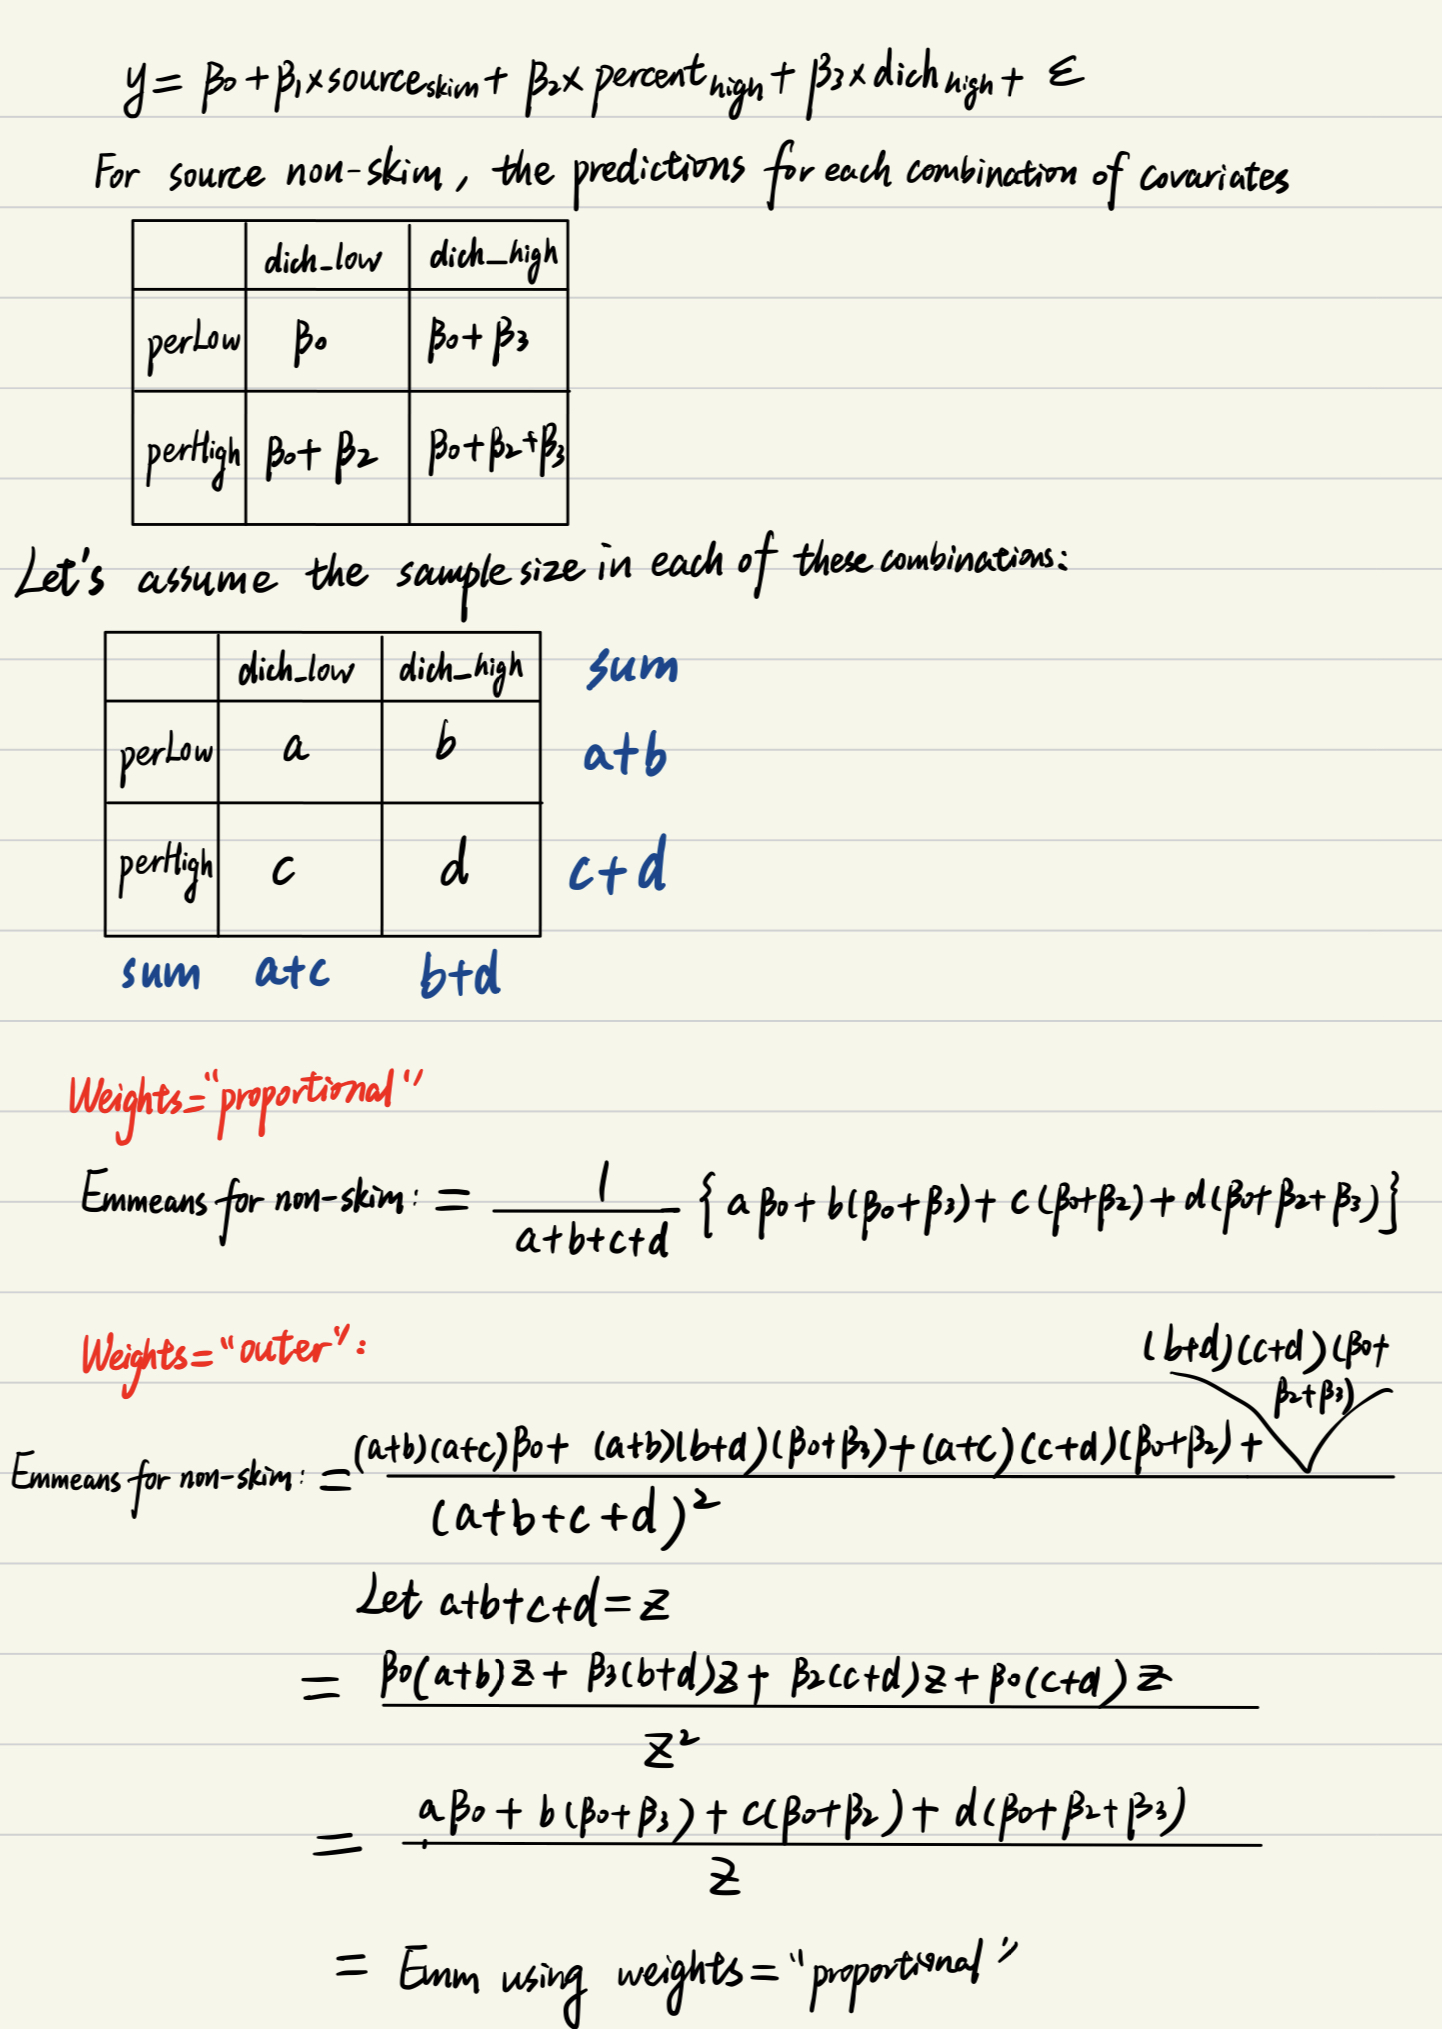 y = β0 + β1 × source_skim + β2 × percent_high + β3 × dich_high + ε
For source non-skim, the predictions for each combination of covariates
dich_low dich_high
perLow β0 β0 + β3
perHigh β0 + β2 β0 + β2 + β3
Let's assume the sample size in each of these combinations:
dich_low dich_high sum
perLow a b a+b
perHigh c d c+d
sum a+c b+d
Weights = "proportional"
Emmeans for non-skim: = 1/(a+b+c+d) { a β0 + b(β0 + β3) + c(β0+β2) + d(β0+β2+β3) }
Weights = "outer":
(b+d)(c+d)(β0+
β2+β3)
(a+b)(a+c)β0 + (a+b)(b+d)(β0+β3) + (a+c)(c+d)(β0+β2) +
Emmeans for non-skim: =
(a+b+c+d)²
Let a+b+c+d = z
= β0(a+b)z + β3(b+d)z + β2(c+d)z + β0(c+d)z
z²
= aβ0 + b(β0+β3) + c(β0+β2) + d(β0+β2+β3)
z
= Emm using weights = "proportional"